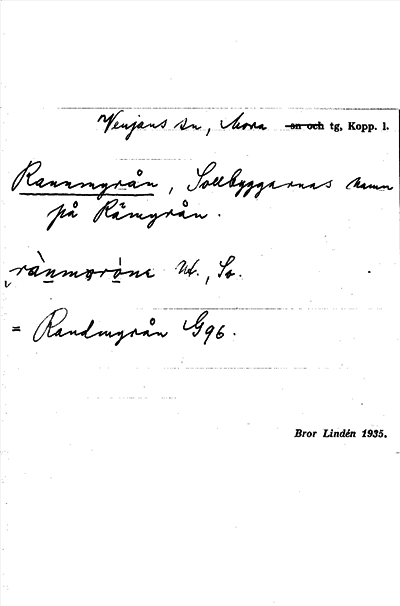 Venjans sn, Mora sn och tg, Kopp. l.
Rannmyrån, Sollbyggarnas namn
på Rämyrån.
Ut., So.
= Randmyrån G96.
Bror Lindén 1935.